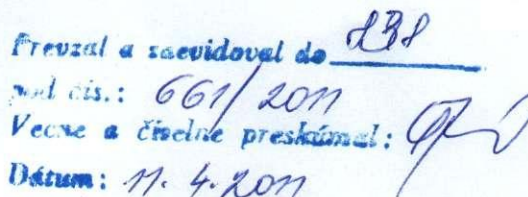 Prevzal a zaevidoval do
pod čís.: 661/2011
Vecne a číselne preskúmal:
Dátum: 11. 4. 2011